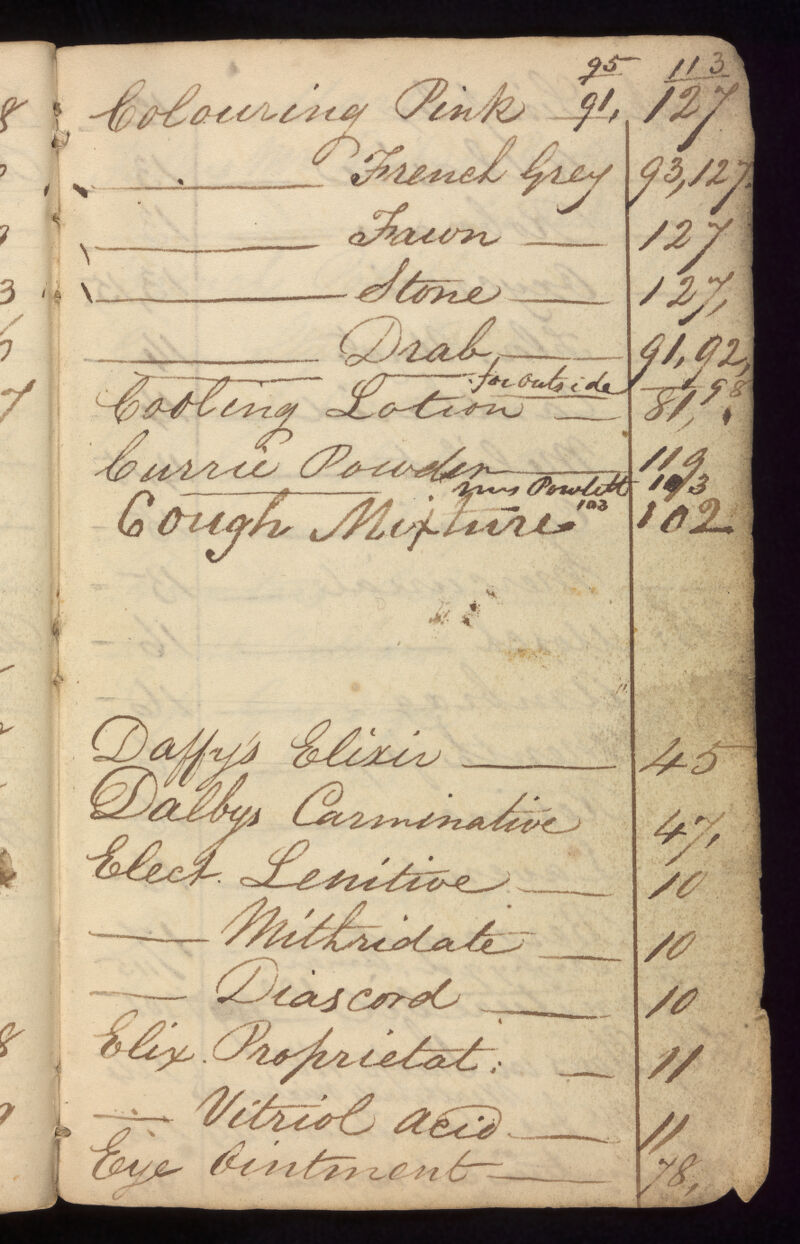 95 113
Colouring Pink 91, 127
French Grey 93, 127.
Fawn 127
Stone 127,
Drab 91, 92,
for outside 98
Cooling Lotion 81,
Currie Powder 119
Mrs Powlett 103 103
Cough Mixture 102
Daffy's Elixir 45
Dalbys Carminative 47,
Elect. Lenitive 10
Mithridate 10
Diascord 10
Elix. Proprietat: 11
Vitriol acid 11
Eye Ointment 78,